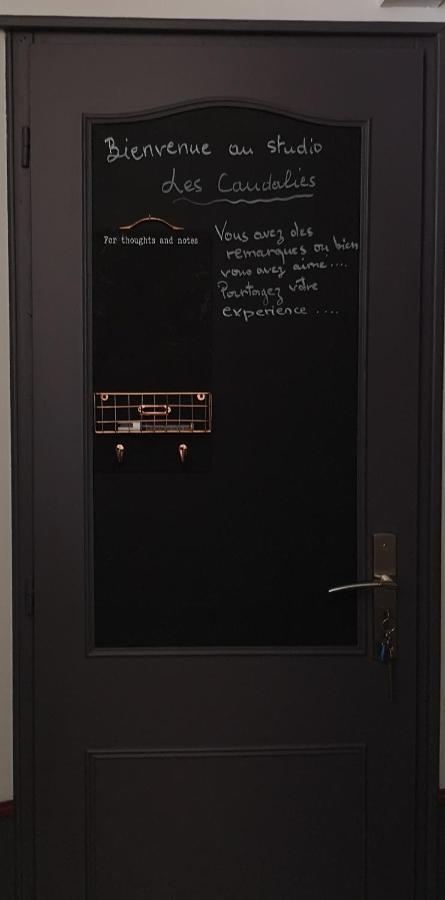 Bienvenue au studio
Les Caudalies
For thoughts and notes
Vous avez des
remarques ou bien
vous avez aimé....
Partagez votre
expérience ....